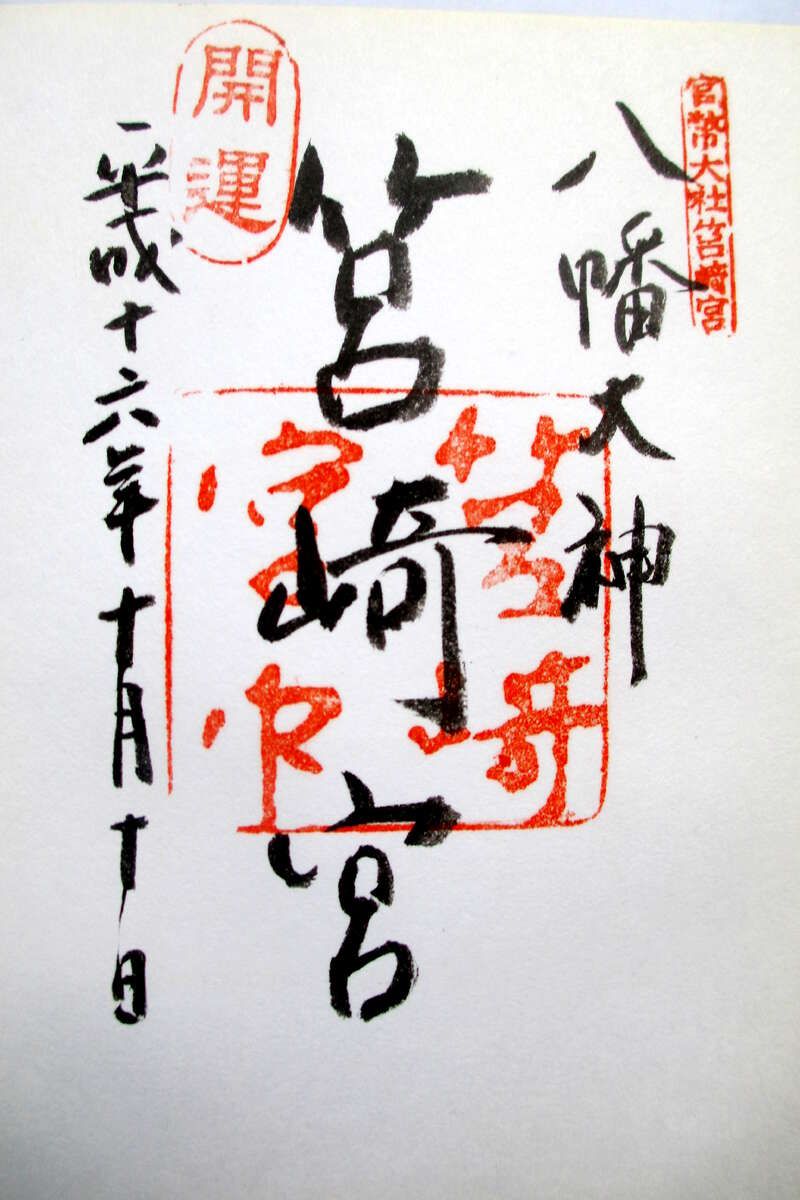 官幣大社筥崎宮
八幡大神
筥崎宮
筥崎
宮印
開運
平成十六年十月十日